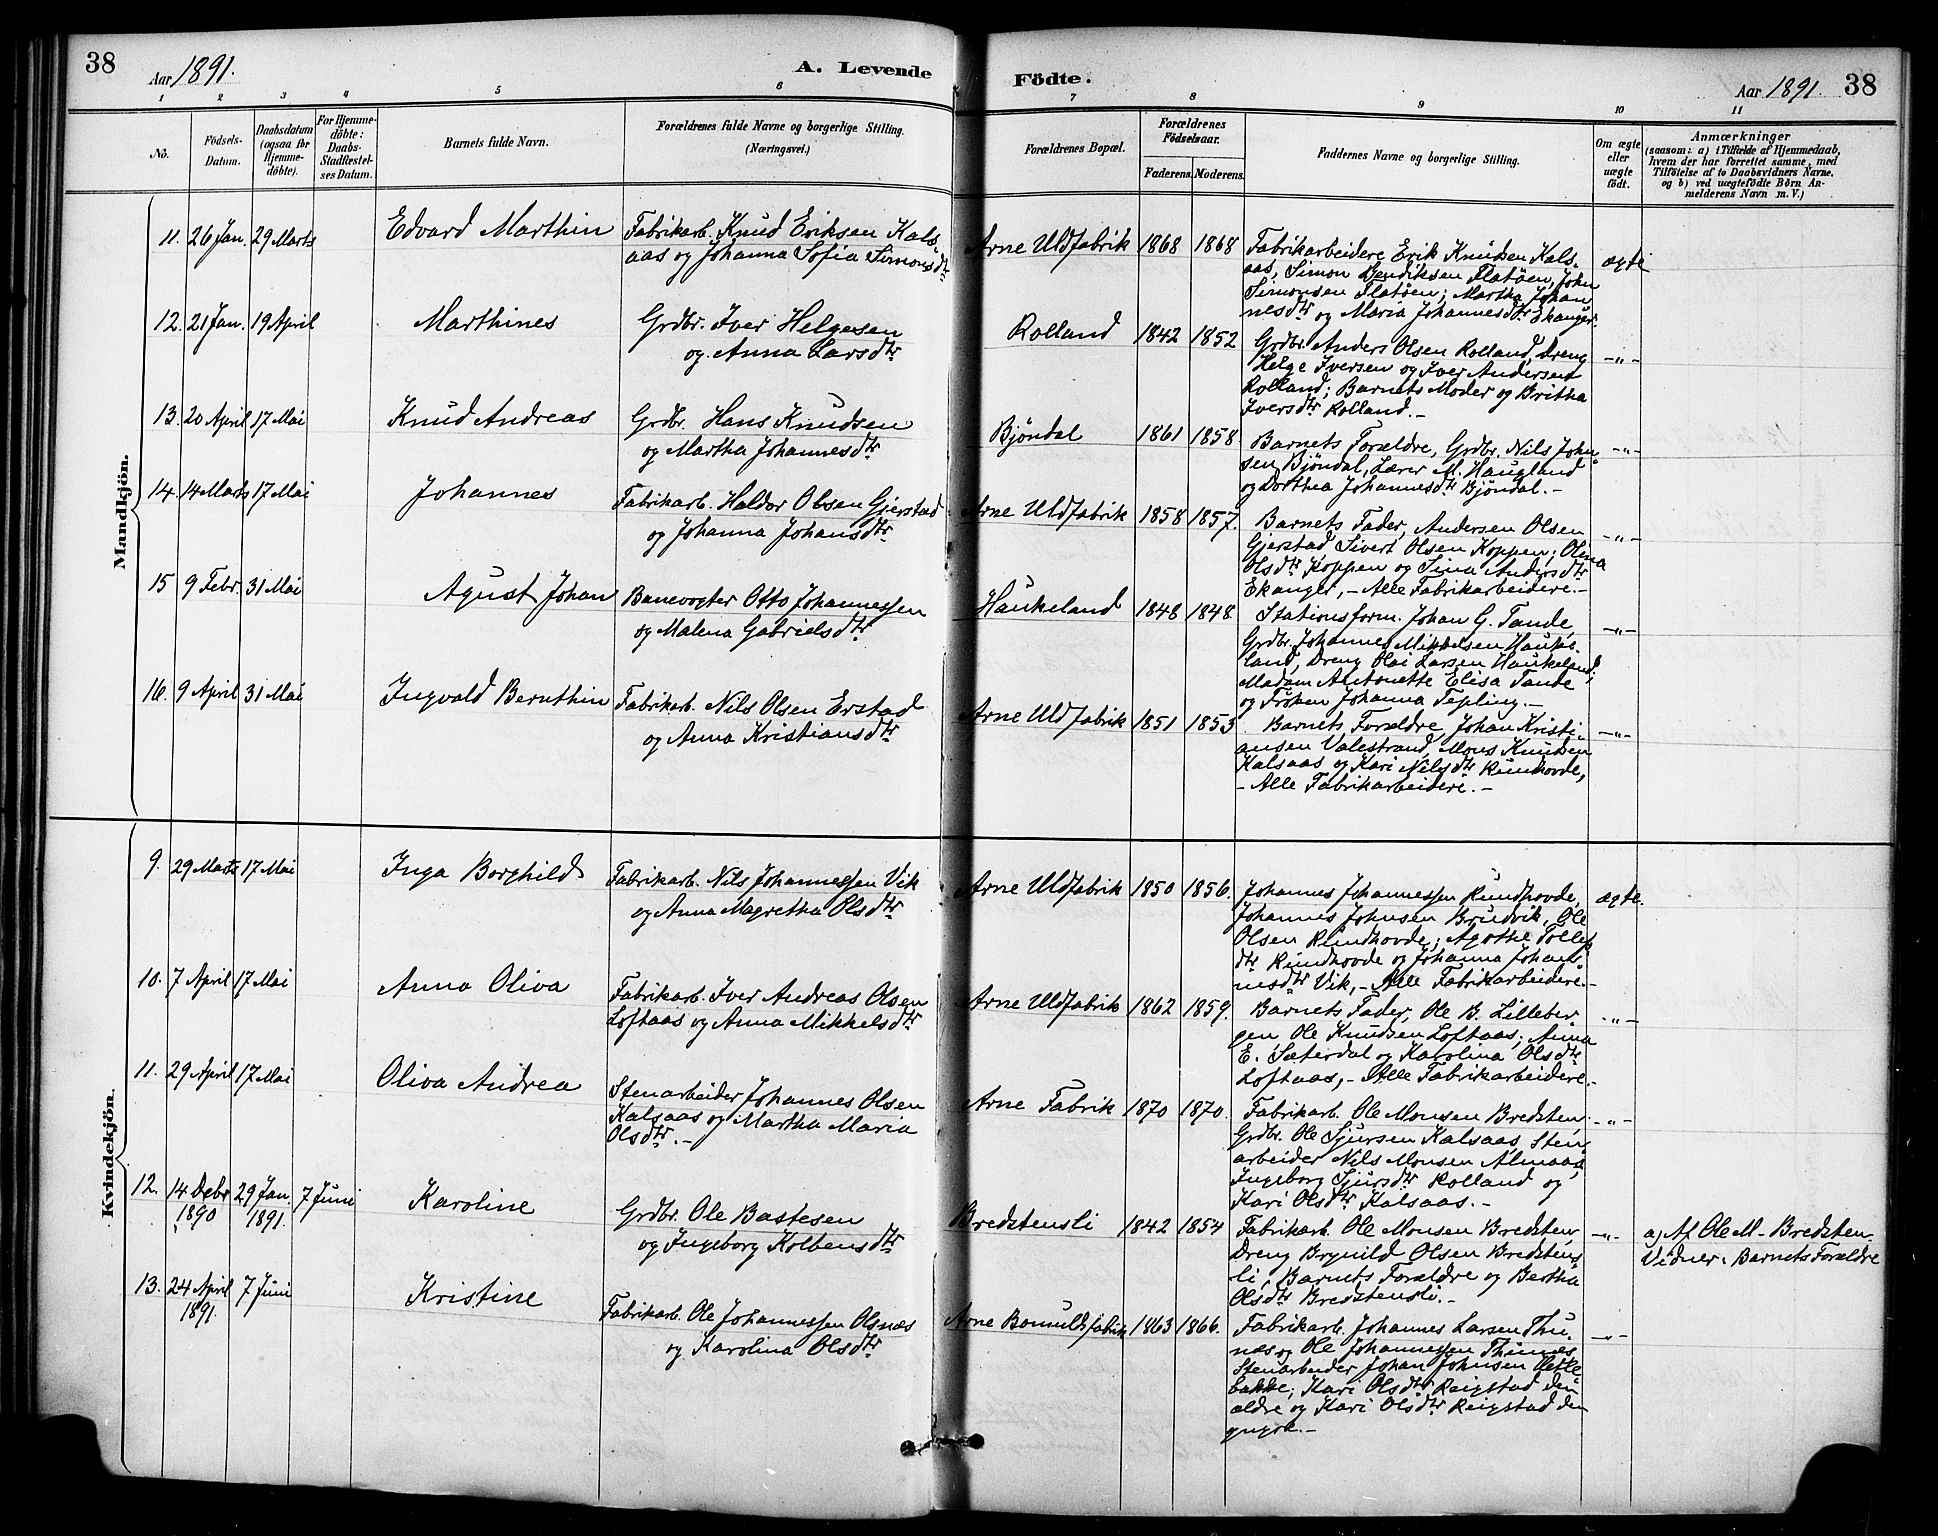 38
Aar 1891.
A. Levende
Födte.
Aar 1891.
38
1 2 3 4 5 6 7 8 9 10 11
No.
Födsels-
Datum.
Daabsdatum
(ogsaa for
Hjemme-
døbte).
For Hjemme-
døbte:
Daabs-
Stadfæstel-
ses Datum.
Barnets fulde Navn.
Forældrenes fulde Navne og borgerlige Stilling.
(Næringsvei.)
Forældrenes Bopæl.
Forældrenes
Födselsaar.
Faderens. Moderens.
Faddernes Navne og borgerlige Stilling.
Om ægte
eller
uægte
födt.
Anmærkninger
(saasom: a) i Tilfælde af Hjemmedaab,
hvem der har forrettet samme, med
Tilföielse af to Daabsvidners Navne,
og b) ved uægtefödte Börn An-
melderens Navn m. V.)
Mandkjön.
11. 26 Jan. 29 Marts
Edvard Marthin
Fabrikarb. Knud Eriksen Kals-
aas og Johanna Sofia Simonsdtr
Arne Uldfabrik 1868 1868
Fabrikarbeidere Erik Knudsen Kals-
aas, Simon Hendriksen Flatöen, John
Simonsen Flatöen; Martha Johan
nesdtr og Maria Johannesdtr Ekanger.
ægte
12. 21 Jan. 19 April
Marthines
Grdbr. Iver Helgesen
og Anna Larsdtr
Rolland 1842 1852
Grdbr. Anders Olsen Rolland, Dreng
Helge Iversen og Iver Andersen
Rolland; Barnets Moder og Britha
Iversdtr Rolland.-
-"-
13. 20 April 17 Mai
Knud Andreas
Grdbr. Hans Knudsen
og Martha Johannesdtr
Bjöndal 1861 1858
Barnets Forældre, Grdbr. Nils John-
sen Bjöndal, Lærer M. Haugland
og Dorthea Johannesdtr Bjöndal.-
-"-
14. 14 Marts 17 Mai
Johannes
Fabrikarb. Haldor Olsen Gjerstad
og Johanna Johansdtr
Arne Uldfabrik 1858 1857.
Barnets Fader, Andersen Olsen
Gjerstad Sivert Olsen Koppen; Olina
Olsdtr Koppen og Sina Andersdtr
Ekanger,- Alle Fabrikarbeidere.-
-"-
15 9 Febr. 31 Mai
Agust Johan
Banevogter Otto Johannessen
og Malena Gabrielsdtr
Haukeland 1848 1848.
Stationsform. Johan G. Tande,
Grdbr. Johannes Mikkelsen Hauke-
land, Dreng Olai Larsen Haukeland;
Madam Antonette Elisa Tande
og Fröken Johanna Tepling.-
-"-
16. 9 April 31 Mai
Ingvald Bernthin
Fabrikarb. Nils Olsen Erstad
og Anna Kristiansdtr
Arne Uldfabrik 1851 1853
Barnets Forældre, Johan Kristi-
ansen Valestrand, Mons Knudsen
Kalsaas og Kari Nilsdtr Rundhovde,
- Alle Fabrikarbeidere.-
-"-
Kvindekjön.
9. 29 Marts 17 Mai
Inga Borghild
Fabrikarb. Nils Johannessen Vik
og Anna Magretha Olsdtr
Arne Uldfabrik 1850 1856.
Johannes Johannessen Rundhovde,
Johannes Johnsen Brudvik, Ole
Olsen Rundhovde; Agothe Tollefs
dtr Rundhovde og Johanna Johan-
nesdtr Vik,- Alle Fabrikarbeidere.-
ægte.
10. 7 April 17 Mai
Anna Oliva
Fabrikarb. Iver Andreas Olsen
Loftaas og Anna Mikkelsdtr
Arne Uldfabrik 1862 1859.
Barnets Fader, Ole B. Lilleber
gen Ole Knudsen Loftaas; Anna
E. Sæterdal og Karolina Olsdtr
Loftaas,- Alle Fabrikarbeidere.-
-"-
11. 29 April 17 Mai
Oliva Andrea
Stenarbeider Johannes Olsen
Kalsaas og Martha Maria
Olsdtr.-
Arne Fabrik 1870 1870.
Fabrikarb. Ole Monsen Bredsten,
Grdbr. Ole Sjursen Kalsaas Sten-
arbeider Nils Monsen Almaas,
Ingeborg Sjursdtr Rolland og
Kari Olsdtr Kalsaas.-
-"-
12. 14 Debr 1890 29 Jan. 1891. 7 Juni
Karoline
Grdbr. Ole Bastesen
og Ingeborg Kolbensdtr
Bredstensli 1842 1854
Fabrikarb. Ole Monsen Bredsten,
Dreng Brynild Olsen Bredstens
li, Barnets Forældre og Bertha
Olsdtr Bredstensli.-
-"-
a) Af Ole M. Bredsten
Vidner: Barnets Forældre
13. 24 April 1891. 7 Juni
Kristine
Fabrikarb. Ole Johannessen Olsnæs
og Karolina Olsdtr
Arne Bomuldsfabrik 1863 1866.
Fabrikarb. Johannes Larsen Thu-
næs og Ole Johannessen Thunes
Stenarbeider Johan Johnsen Hetle
bakke; Kari Olsdtr Reigstad den
ældre og Kari Olsdtr Reigstad den
yngre.-
-"-